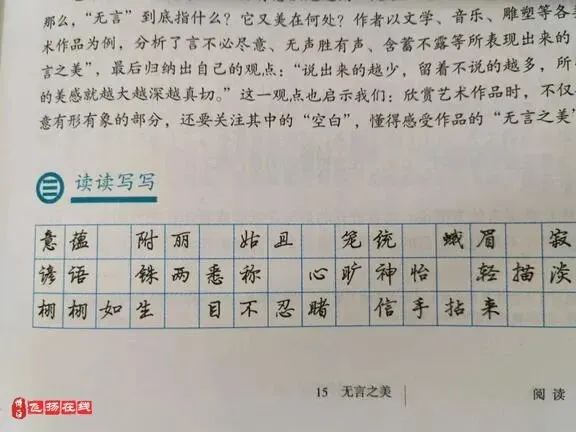 那么，“无言”到底指什么？它又美在何处？作者以文学、音乐、雕塑等各
术作品为例，分析了言不必尽意、无声胜有声、含蓄不露等所表现出来的
言之美”，最后归纳出自己的观点：“说出来的越少，留着不说的越多，所
的美感就越大越深越真切。”这一观点也启示我们：欣赏艺术作品时，不仅
意有形有象的部分，还要关注其中的“空白”，懂得感受作品的“无言之美
三 读读写写
意蕴 附丽 姑且 笼统 蛾眉 寂
谚语 铢两悉称 心旷神怡 轻描淡
栩栩如生 目不忍睹 信手拈来
15 无言之美 阅读
飞扬在线